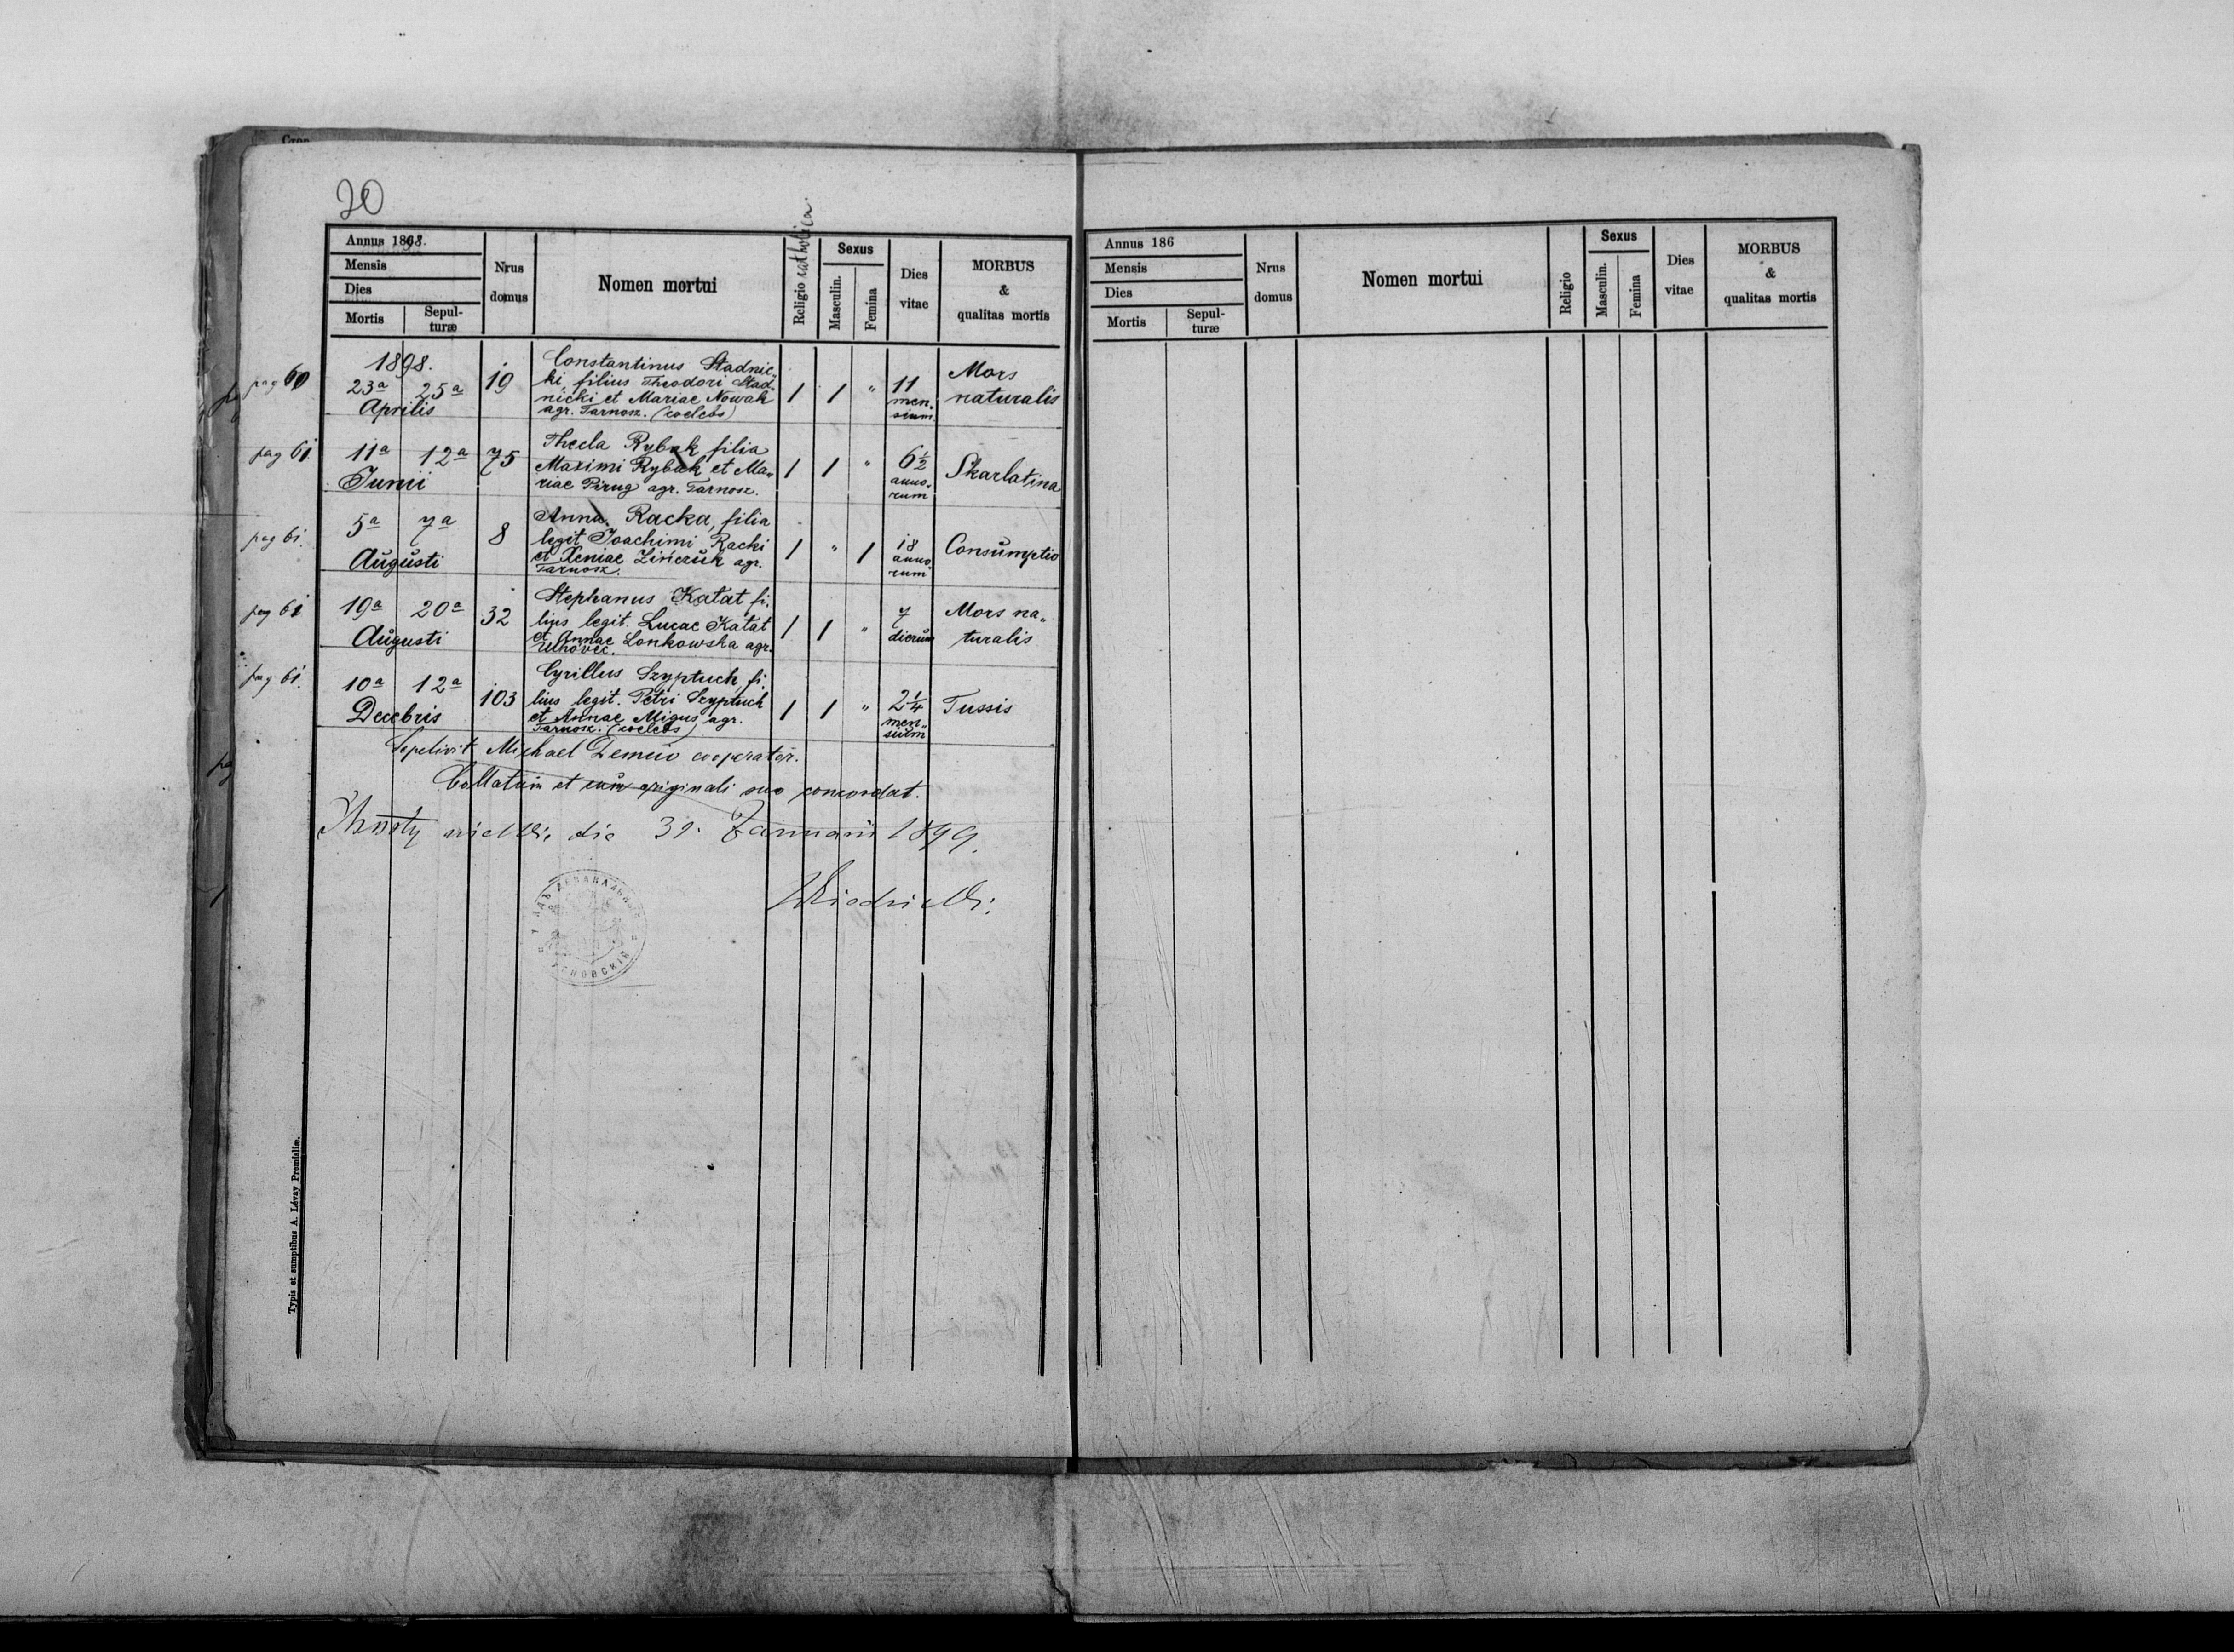 20
Annus 1898.
Mensis
Dies
Mortis
Sepul-
turæ
Nrus
domus
Nomen mortui
Religio catholica.
Sexus
Masculin.
Femina
Dies
vitae
MORBUS
&
qualitas mortis
pag 60
1898.
23a 25a
Aprilis
19
Constantinus Stadnic„
ki, filius Theodori Stad„
nicki et Mariae Nowak
agr. Tarnosz. (coelebs)
1 1 „
11
men„
sium
Mors
naturalis
pag 61
11a 12a
Junii
75
Thecla Rybak filia
Maximi Rybak et Ma„
riae Pirug agr. Tarnosz.
1 1 „
6½
anno„
rum
Skarlatina
pag 61.
5a 7a
Augusti
8
Anna Racka, filia
legit Joachimi Racki
et Xeniae Zińczuk agr.
Tarnosz.
1 „ 1
18
anno
rum
Consumptio
pag 61
19a 20a
Augusti
32
Stephanus Katat fi„
lius legit. Lucae Katat
et Annae Lonkowska agr.
1 1 „
7
dierum
Mors na„
turalis
pag 61.
10a 12a
Decebris
103
Cyrillus Szyptuch fi„
lius legit. Petri Szyptuch
et Annae Migus agr.
Tarnosz. (coelebs)
1 1 „
2¼
men„
sium
Tussis
Sepelivit Michael cooperator.
Collatum et cum originali suo concordat.
die 31. Januarii 1899.
Typis et sumptibus A. Lévay Premisliæ.
Annus 186
Mensis
Dies
Mortis
Sepul-
turæ
Nrus
domus
Nomen mortui
Religio
Sexus
Masculin.
Femina
Dies
vitae
MORBUS
&
qualitas mortis